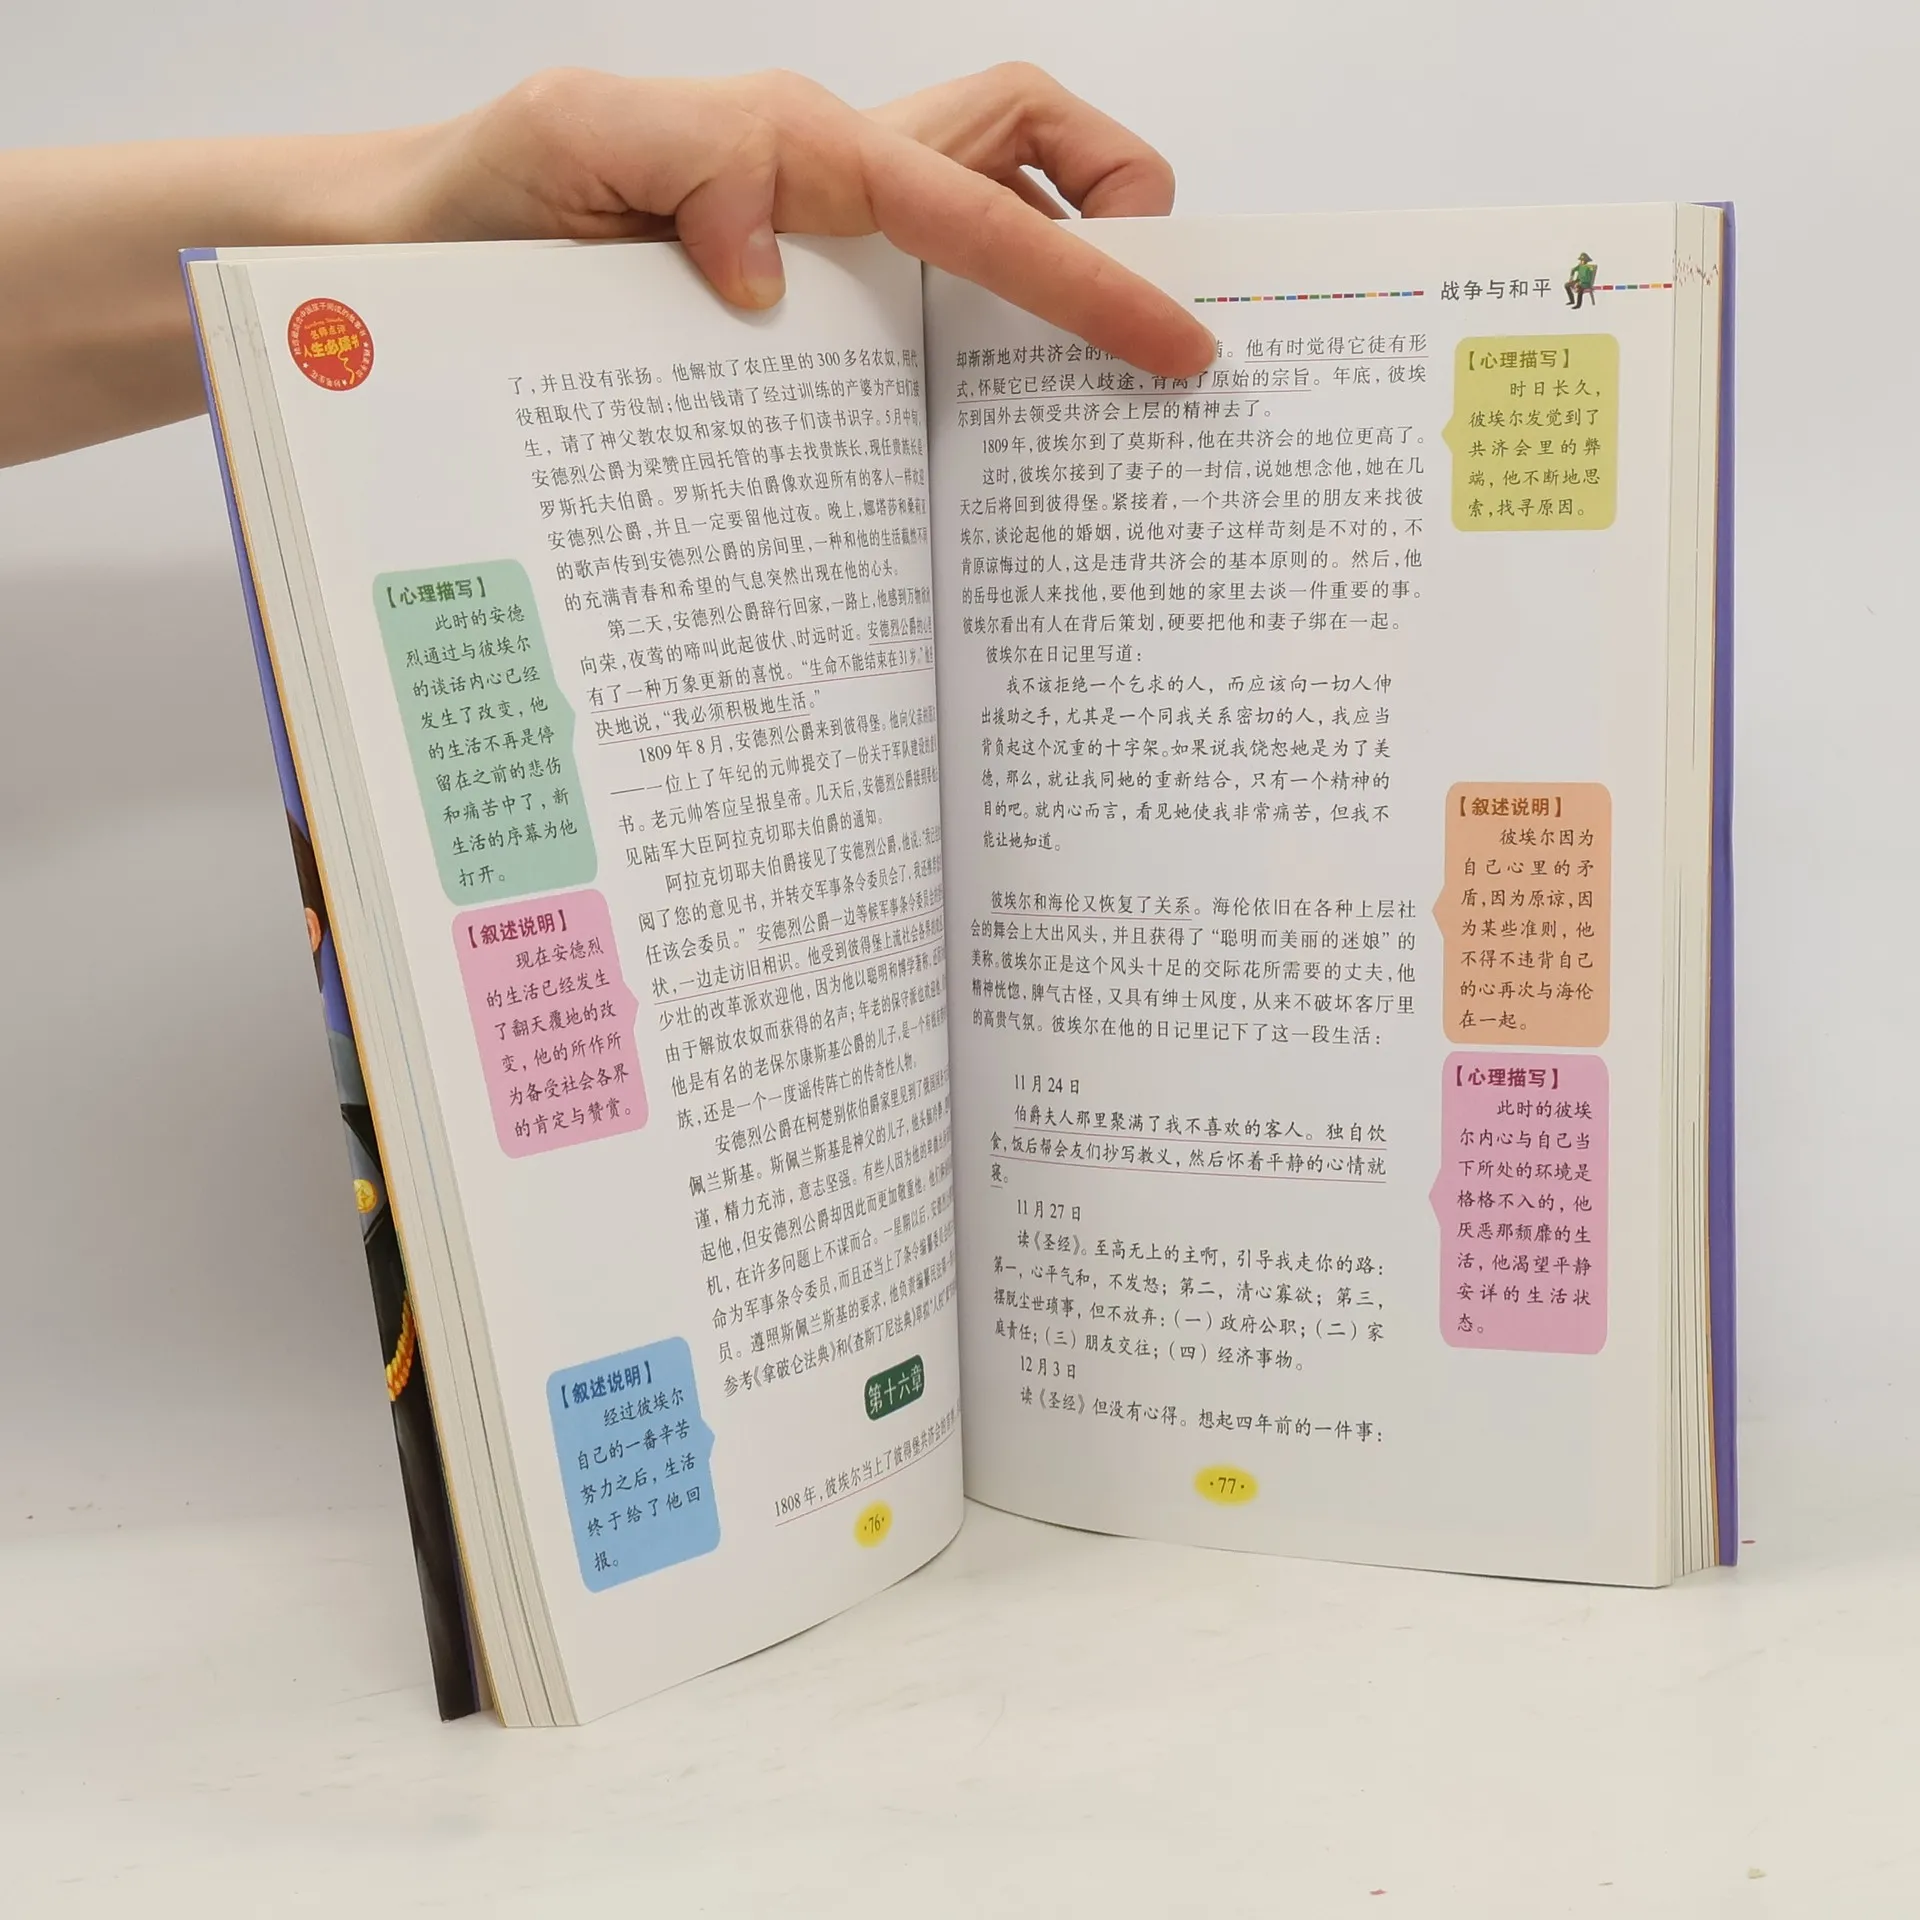 名师点评
人生必读书
了，并且没有张扬。他解放了农庄里的300多名农奴，用代
役租取代了劳役制；他出钱请了经过训练的产婆为产妇们接
生，请了神父教农奴和家奴的孩子们读书识字。5月中旬，
安德烈公爵为梁赞庄园托管的事去找贵族长，现任贵族长是
罗斯托夫伯爵。罗斯托夫伯爵像欢迎所有的客人一样欢迎
安德烈公爵，并且一定要留他过夜。晚上，娜塔莎和桑莉亚
的歌声传到安德烈公爵的房间里，一种和他的生活截然不同
的充满青春和希望的气息突然出现在他的心头。
第二天，安德烈公爵辞行回家，一路上，他感到万物欣欣
向荣，夜莺的啼叫此起彼伏、时远时近。安德烈公爵的心里
有了一种万象更新的喜悦。“生命不能结束在31岁。”他坚
决地说，“我必须积极地生活。”
1809年8月，安德烈公爵来到彼得堡。他向父亲的朋友
——一位上了年纪的元帅提交了一份关于军队建设的意见
书。老元帅答应呈报皇帝。几天后，安德烈公爵接到要他去
见陆军大臣阿拉克切耶夫伯爵的通知。
阿拉克切耶夫伯爵接见了安德烈公爵，他说：“我已
阅了您的意见书，并转交军事条令委员会了，我还推荐
任该会委员。”安德烈公爵一边等候军事条令委员会的
状，一边走访旧相识。他受到彼得堡上流社会各界的
少壮的改革派欢迎他，因为他以聪明和博学著称，还
由于解放农奴而获得的名声；年老的保守派也欢迎他，
他是有名的老保尔康斯基公爵的儿子，是一个有钱
族，还是一个一度谣传阵亡的传奇性人物。
安德烈公爵在柯楚别依伯爵家里见到了俄国国务
佩兰斯基。斯佩兰斯基是神父的儿子，他头脑冷静，
谨，精力充沛，意志坚强。有些人因为他的卑微
起他，但安德烈公爵却因此而更加敬重他。他们
机，在许多问题上不谋而合。一星期以后，安德烈公
命为军事条令委员，而且还当上了条令编纂委员会
员。遵照斯佩兰斯基的要求，他负责编纂民法第一
参考《拿破仑法典》和《查斯丁尼法典》草拟“人权”
第十六章
1808年，彼埃尔当上了彼得堡共济会的首
·76·
【心理描写】
此时的安德
烈通过与彼埃尔
的谈话内心已经
发生了改变，他
的生活不再是停
留在之前的悲伤
和痛苦中了，新
生活的序幕为他
打开。
【叙述说明】
现在安德烈
的生活已经发生
了翻天覆地的改
变，他的所作所
为备受社会各界
的肯定与赞赏。
【叙述说明】
经过彼埃尔
自己的一番辛苦
努力之后，生活
终于给了他回
报。
战争与和平
却渐渐地对共济会的 。他有时觉得它徒有形
式，怀疑它已经误入歧途，背离了原始的宗旨。年底，彼埃
尔到国外去领受共济会上层的精神去了。
1809年，彼埃尔到了莫斯科，他在共济会的地位更高了。
这时，彼埃尔接到了妻子的一封信，说她想念他，她在几
天之后将回到彼得堡。紧接着，一个共济会里的朋友来找彼
埃尔，谈论起他的婚姻，说他对妻子这样苛刻是不对的，不
肯原谅悔过的人，这是违背共济会的基本原则的。然后，他
的岳母也派人来找他，要他到她的家里去谈一件重要的事。
彼埃尔看出有人在背后策划，硬要把他和妻子绑在一起。
彼埃尔在日记里写道：
我不该拒绝一个乞求的人，而应该向一切人伸
出援助之手，尤其是一个同我关系密切的人，我应当
背负起这个沉重的十字架。如果说我饶恕她是为了美
德，那么，就让我同她的重新结合，只有一个精神的
目的吧。就内心而言，看见她使我非常痛苦，但我不
能让她知道。
彼埃尔和海伦又恢复了关系。海伦依旧在各种上层社
会的舞会上大出风头，并且获得了“聪明而美丽的迷娘”的
美称。彼埃尔正是这个风头十足的交际花所需要的丈夫，他
精神恍惚，脾气古怪，又具有绅士风度，从来不破坏客厅里
的高贵气氛。彼埃尔在他的日记里记下了这一段生活：
11月24日
伯爵夫人那里聚满了我不喜欢的客人。独自饮
食，饭后帮会友们抄写教义，然后怀着平静的心情就
寝。
11月27日
读《圣经》。至高无上的主啊，引导我走你的路：
第一，心平气和，不发怒；第二，清心寡欲；第三，
摆脱尘世琐事，但不放弃：（一）政府公职；（二）家
庭责任；（三）朋友交往；（四）经济事物。
12月3日
读《圣经》但没有心得。想起四年前的一件事：
·77·
【心理描写】
时日长久，
彼埃尔发觉到了
共济会里的弊
端，他不断地思
索，找寻原因。
【叙述说明】
彼埃尔因为
自己心里的矛
盾，因为原谅，因
为某些准则，他
不得不违背自己
的心再次与海伦
在一起。
【心理描写】
此时的彼埃
尔内心与自己当
下所处的环境是
格格不入的，他
厌恶那颓靡的生
活，他渴望平静
安详的生活状
态。